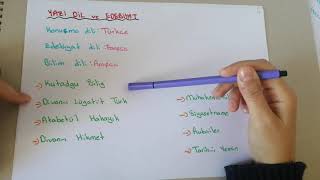 YAZI DİL ve EDEBİYAT
Konuşma dili: Türkçe
Edebiyat dili: Farsça
Bilim dili: Arapça
→ Kutadgu Bilig
→ Divanı Lügatit Türk
→ Atabetül Hakayık
→ Divanı Hikmet
→ Siyasetname
→ Rubailer